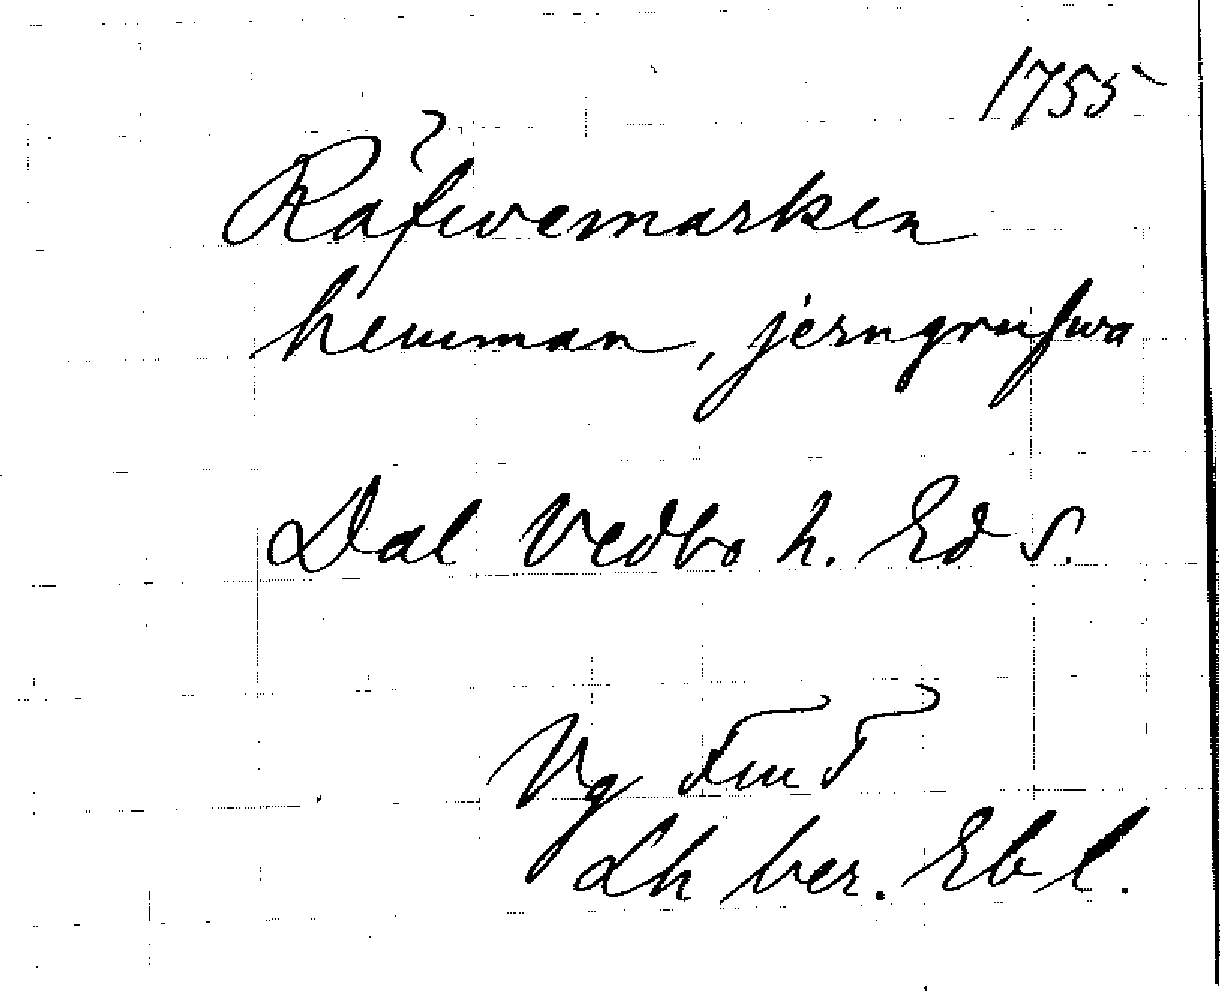 1755
Råfwemarken
hemman, jerngrufwa
Dal Vedbo h. Ed s.
Vg
Lh ber. Ebl.